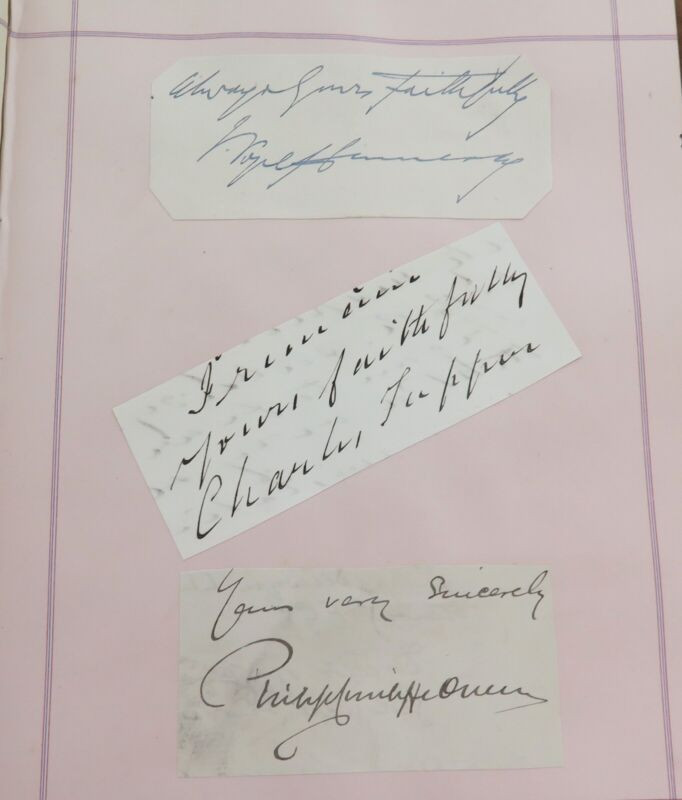 Always Yours Faithfully
J. Pope Hennessy
I remain
Yours faithfully
Charles Tupper
Yours very Sincerely
Philip Cunliffe Owen